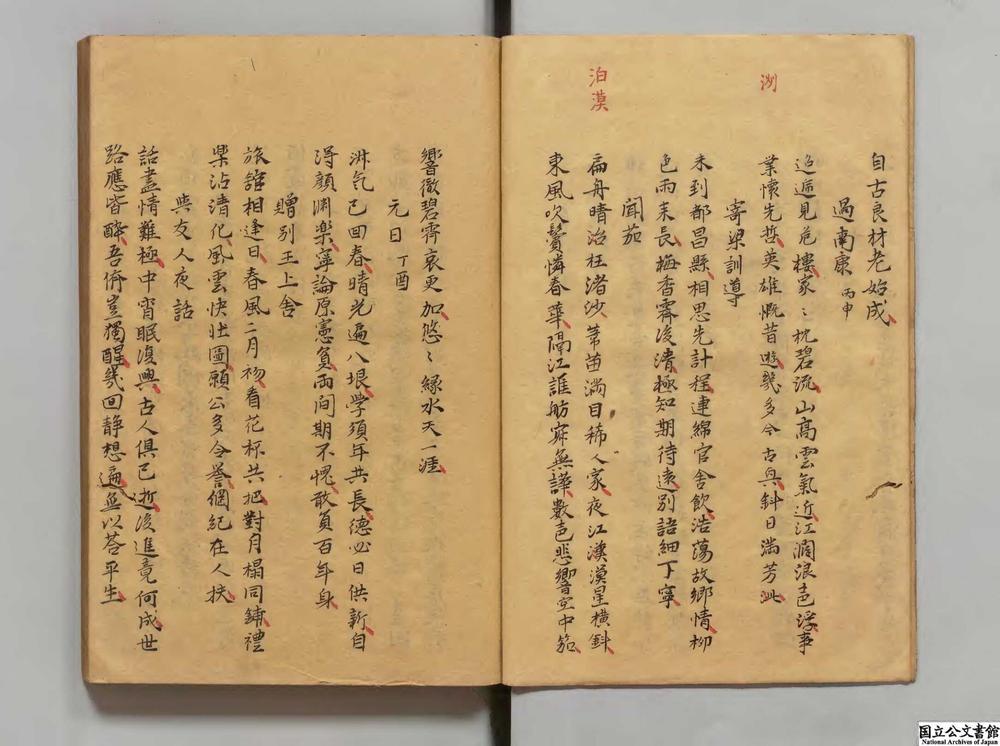 泖
泊漠
自古良材老始成
過南康 丙申
迢遞見危樓家〻枕碧流山高雲氣近江濶浪色浮事
業懷先哲英雄慨昔遊幾多今古興斜日滿芳泚
寄梁訓導
未到都昌縣相思先計程連綿官舍飲浩蕩故鄉情柳
色雨未長梅香霽後清極知期待遠別語細丁寧
聞茄
扁舟晴治枉渚沙茅苗滿目稀人家夜江漢漠星橫斜
東風吹鬢憐春華隔江誰舫寂無譁數色悲響空中笳
響徹碧霄哀更加悠〻緑水天一涯
元日 丁酉
淑气已回春晴光遍八垠学須年共長德必日供新自
得顔淵樂寧論原憲貧兩間期不愧敢負百年身
贈別王上舍
旅舘相逢日春風二月初看花杯共把對月榻同鋪禮
樂沾清化風雲快壯圖願公多令譽綱紀在人扶
與友人夜話
話盡情難極中宵眠復興古人俱已逝後進竟何成世
路應皆醉吾儕豈獨醒幾回静想遍無以荅平生
国立公文書館
National Archives of Japan